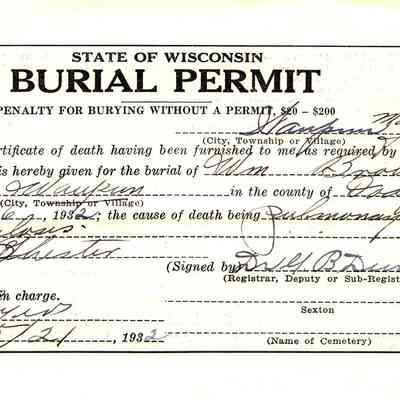 STATE OF WISCONSIN
BURIAL PERMIT
PENALTY FOR BURYING WITHOUT A PERMIT, $20 – $200
Waupun
(City, Township or Village)
ertificate of death having been furnished to me, as required by
is hereby given for the burial of Wm Bro
Waupun in the county of Dod
(City, Township or Village)
6, 1932; the cause of death being Pulmonary
ulosis.
Chester
(Signed by
(Registrar, Deputy or Sub-Regist
in charge.
Sexton
/21, 1932
(Name of Cemetery)